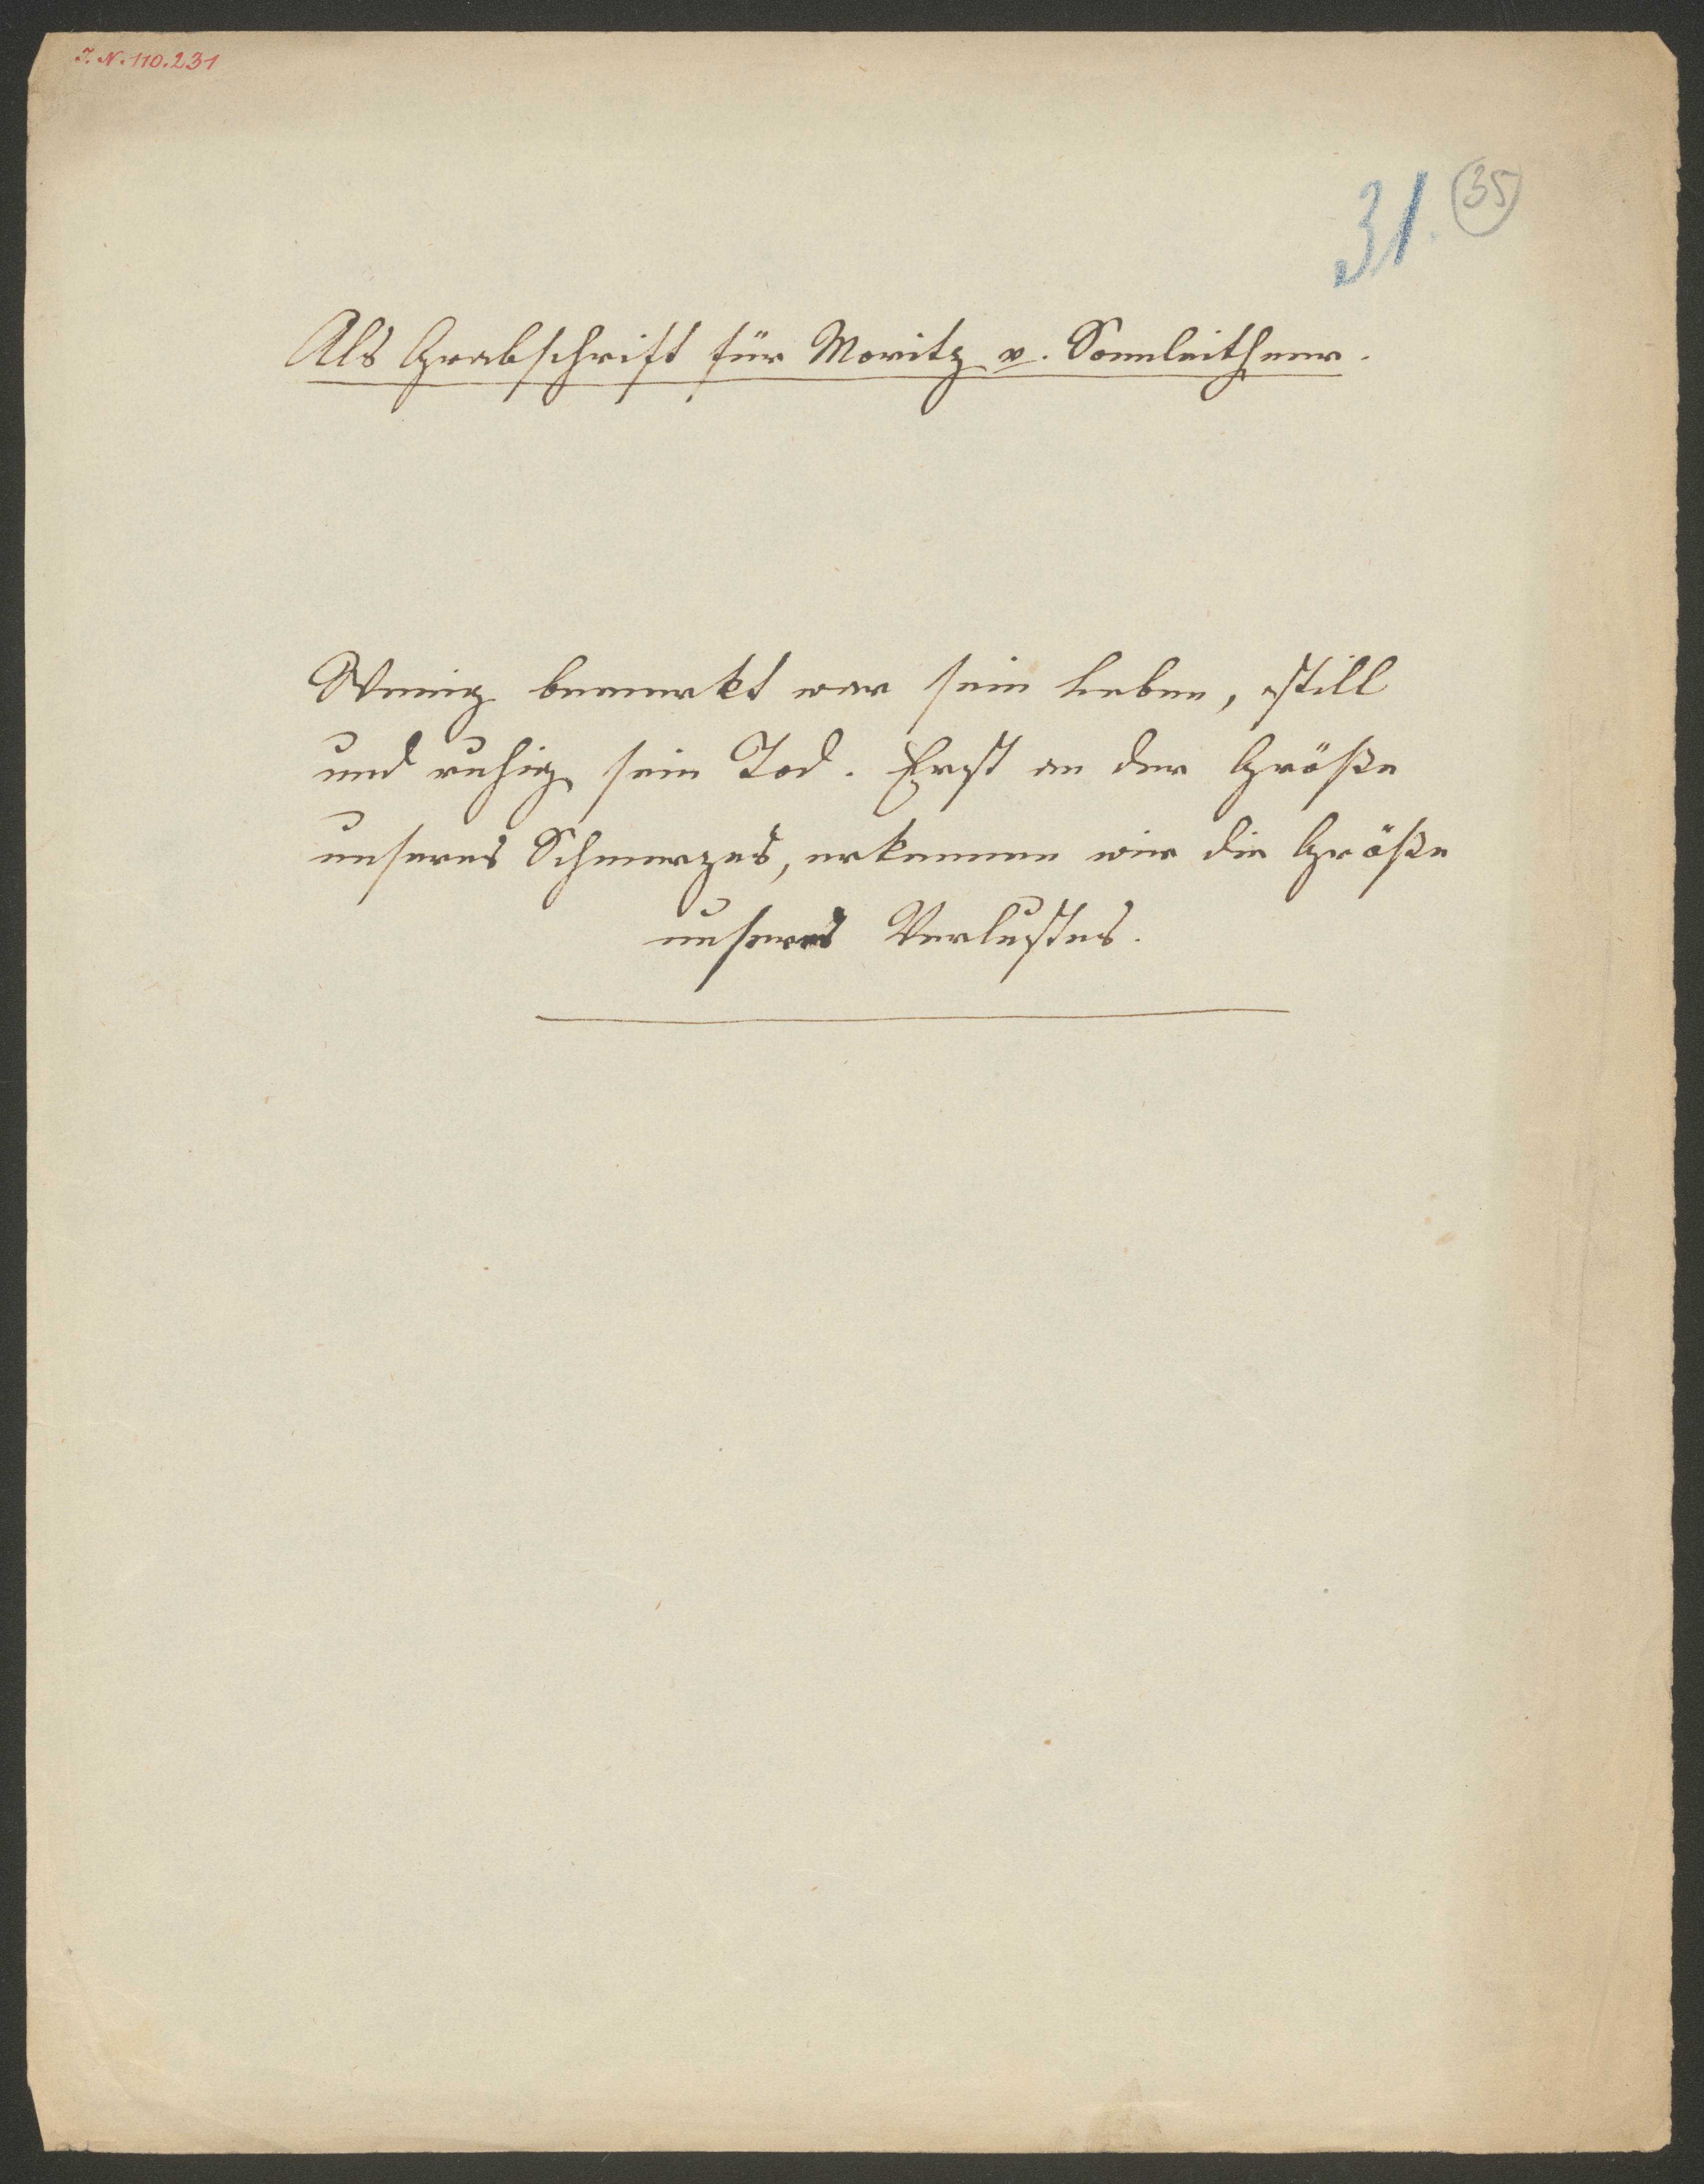 J. N. 110.231
31. 35
Als Grabschrift für Moritz v. Sonnleithner.
Wenig bemerkt war sein Leben, still
und ruhig sein Tod. Erst an der Größe
unseres Schmerzes, erkennen wir die Größe
unseres Verlustes.